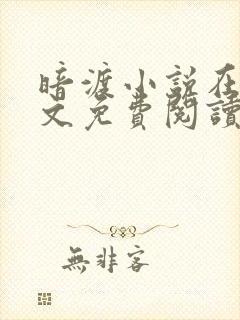 暗渡小说在
文免费閱讀
無非客